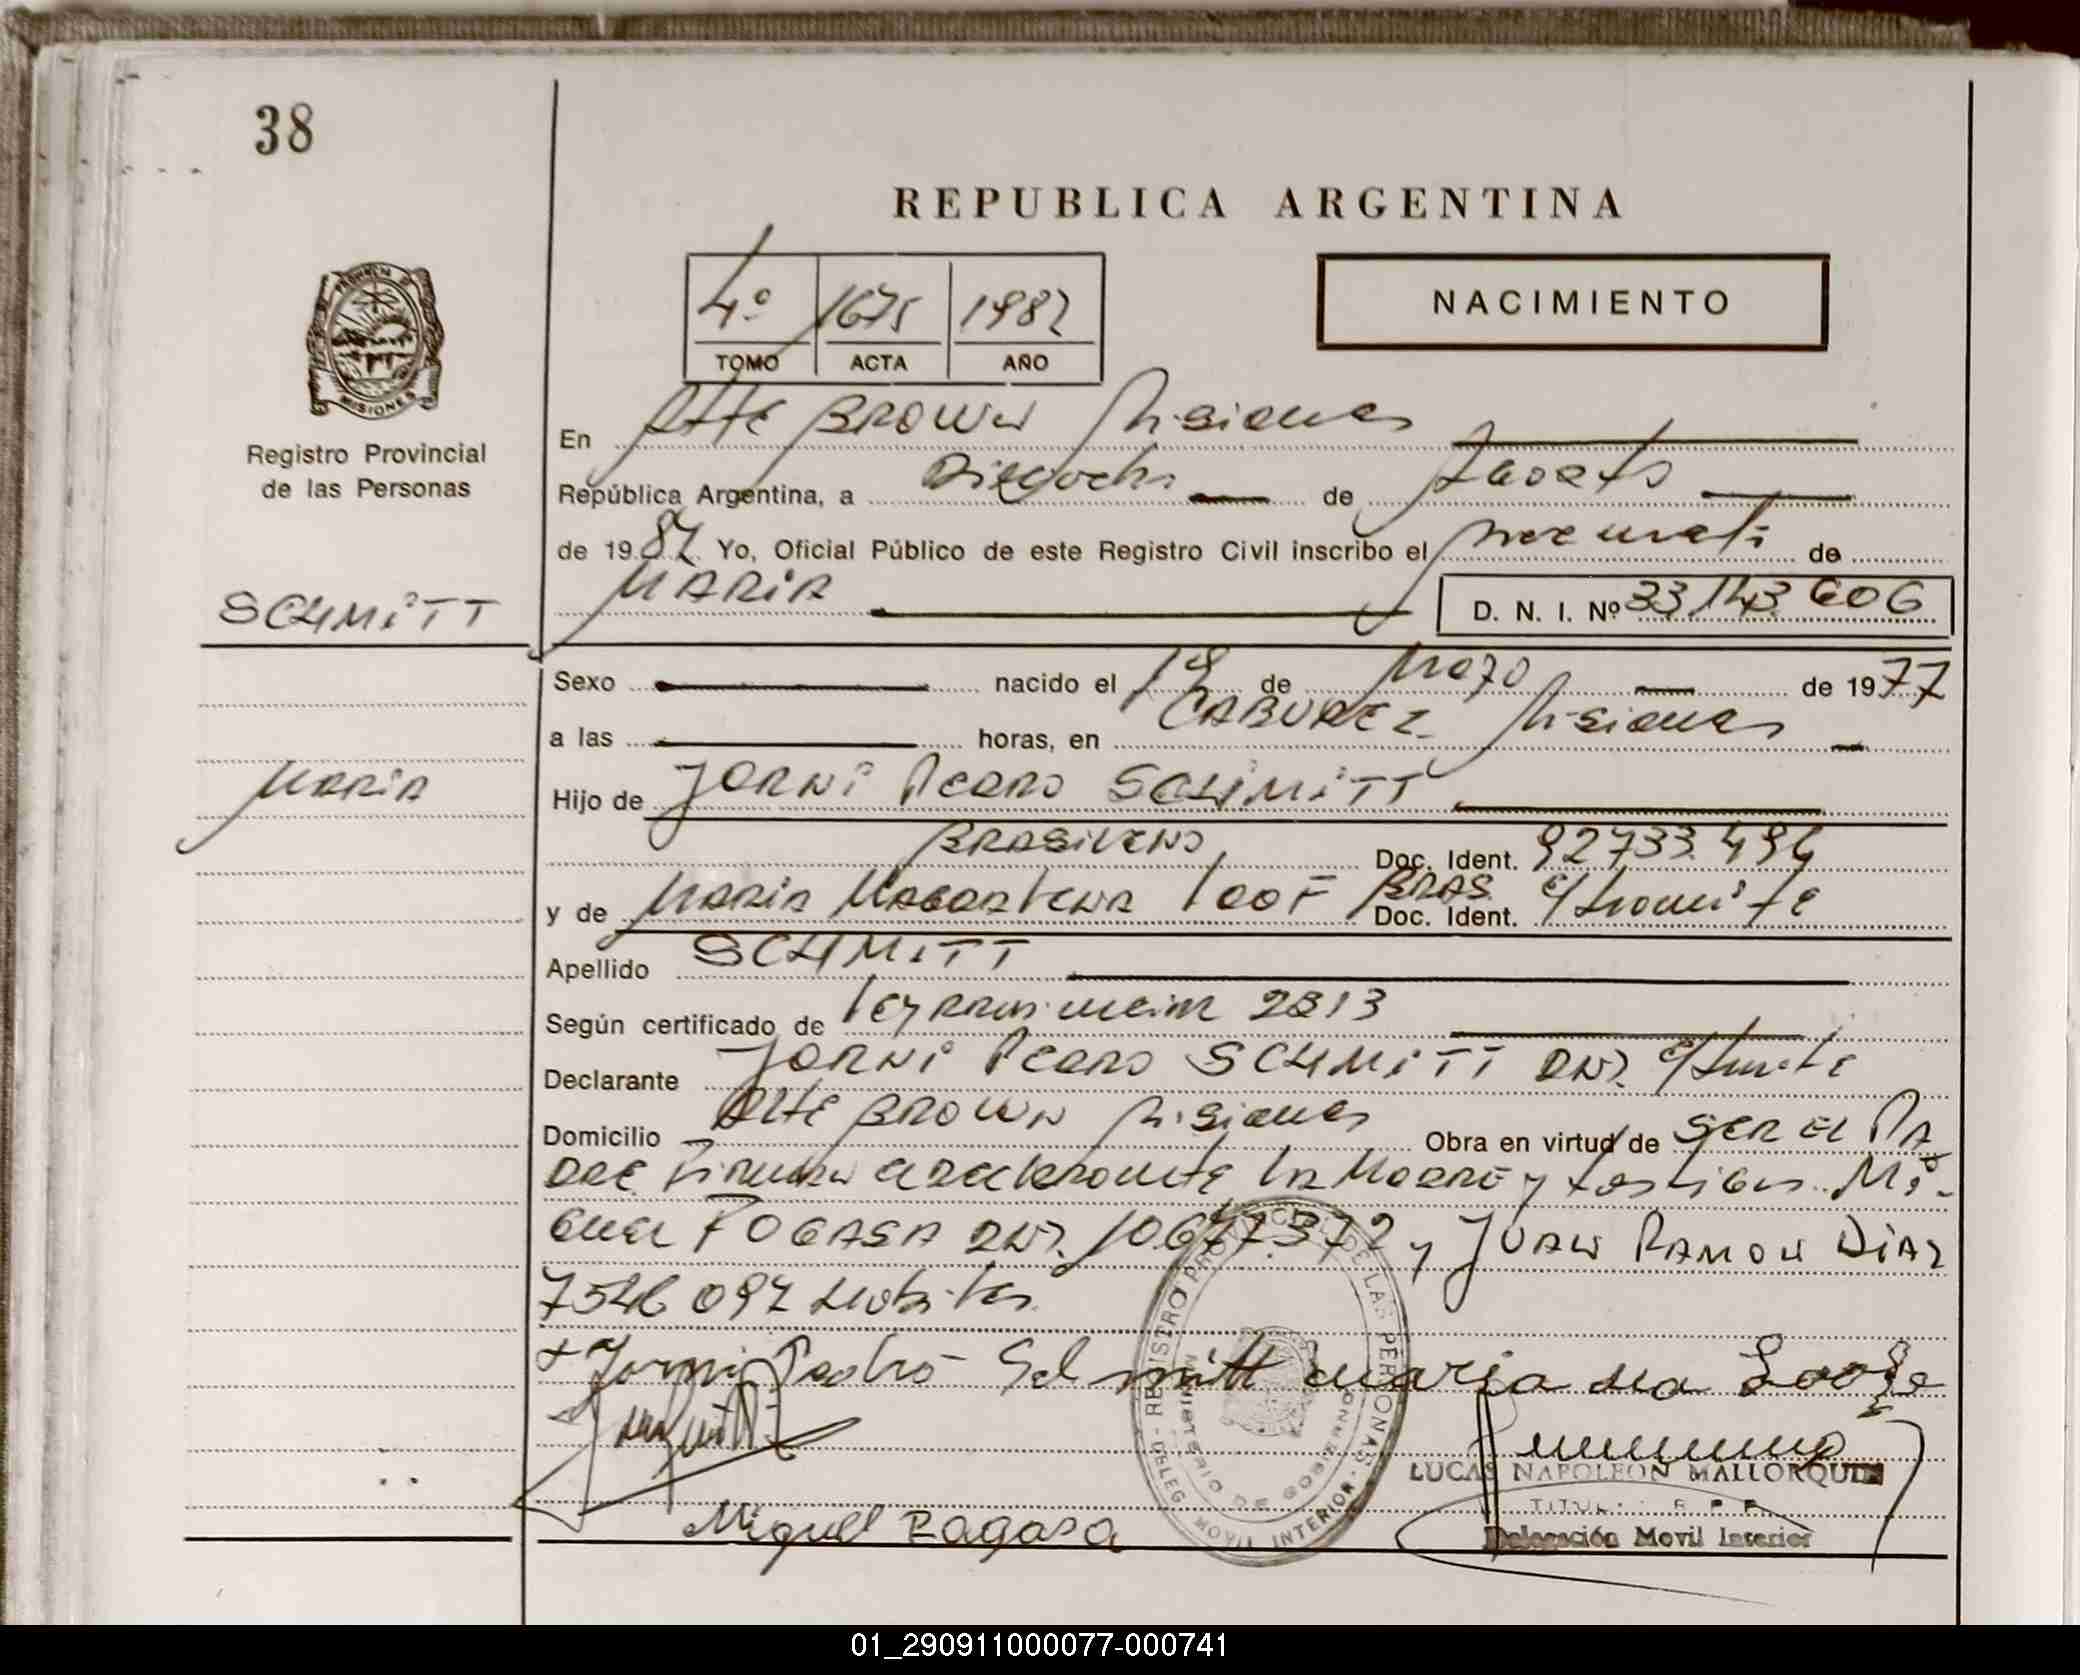 38
REPUBLICA ARGENTINA
4º 1675 1982
TOMO ACTA AÑO
NACIMIENTO
PROVINCIA DE MISIONES
Registro Provincial
de las Personas
En Alte BROWN Misiones
República Argentina, a Dieciocho de Agosto
de 1982 Yo, Oficial Público de este Registro Civil inscribo el nacimiento de
MARIA
D. N. I. Nº 33.143.606
SCHMITT
MARIA
Sexo nacido el 18 de Mayo de 1977
a las horas, en CABUREI Misiones
Hijo de JORNI PEDRO SCHMITT
BRASILENO Doc. Ident. 92733.494
y de MARIA MAGDALENA LOOF BRAS. Doc. Ident.
Apellido SCHMITT
Según certificado de 2813
Declarante JORNI PEDRO SCHMITT DNI.
Domicilio Alte BROWN Misiones Obra en virtud de SER EL PA
DRE. Firman el declarante LA MADRE y testigos Mi-
guel FOGASA DNI. 10.677.372 y JUAN RAMON DIAZ
7546 097
+ Jorni Pedro Schmitt maria
Miguel Fagasa
REGISTRO PROVINCIAL DE LAS PERSONAS - DELEG. MOVIL INTERIOR -
MINISTERIO DE GOBIERNO
LUCAS NAPOLEON MALLORQUIN
TITUL. R P P
Delegación Movil Interior
01_290911000077-000741